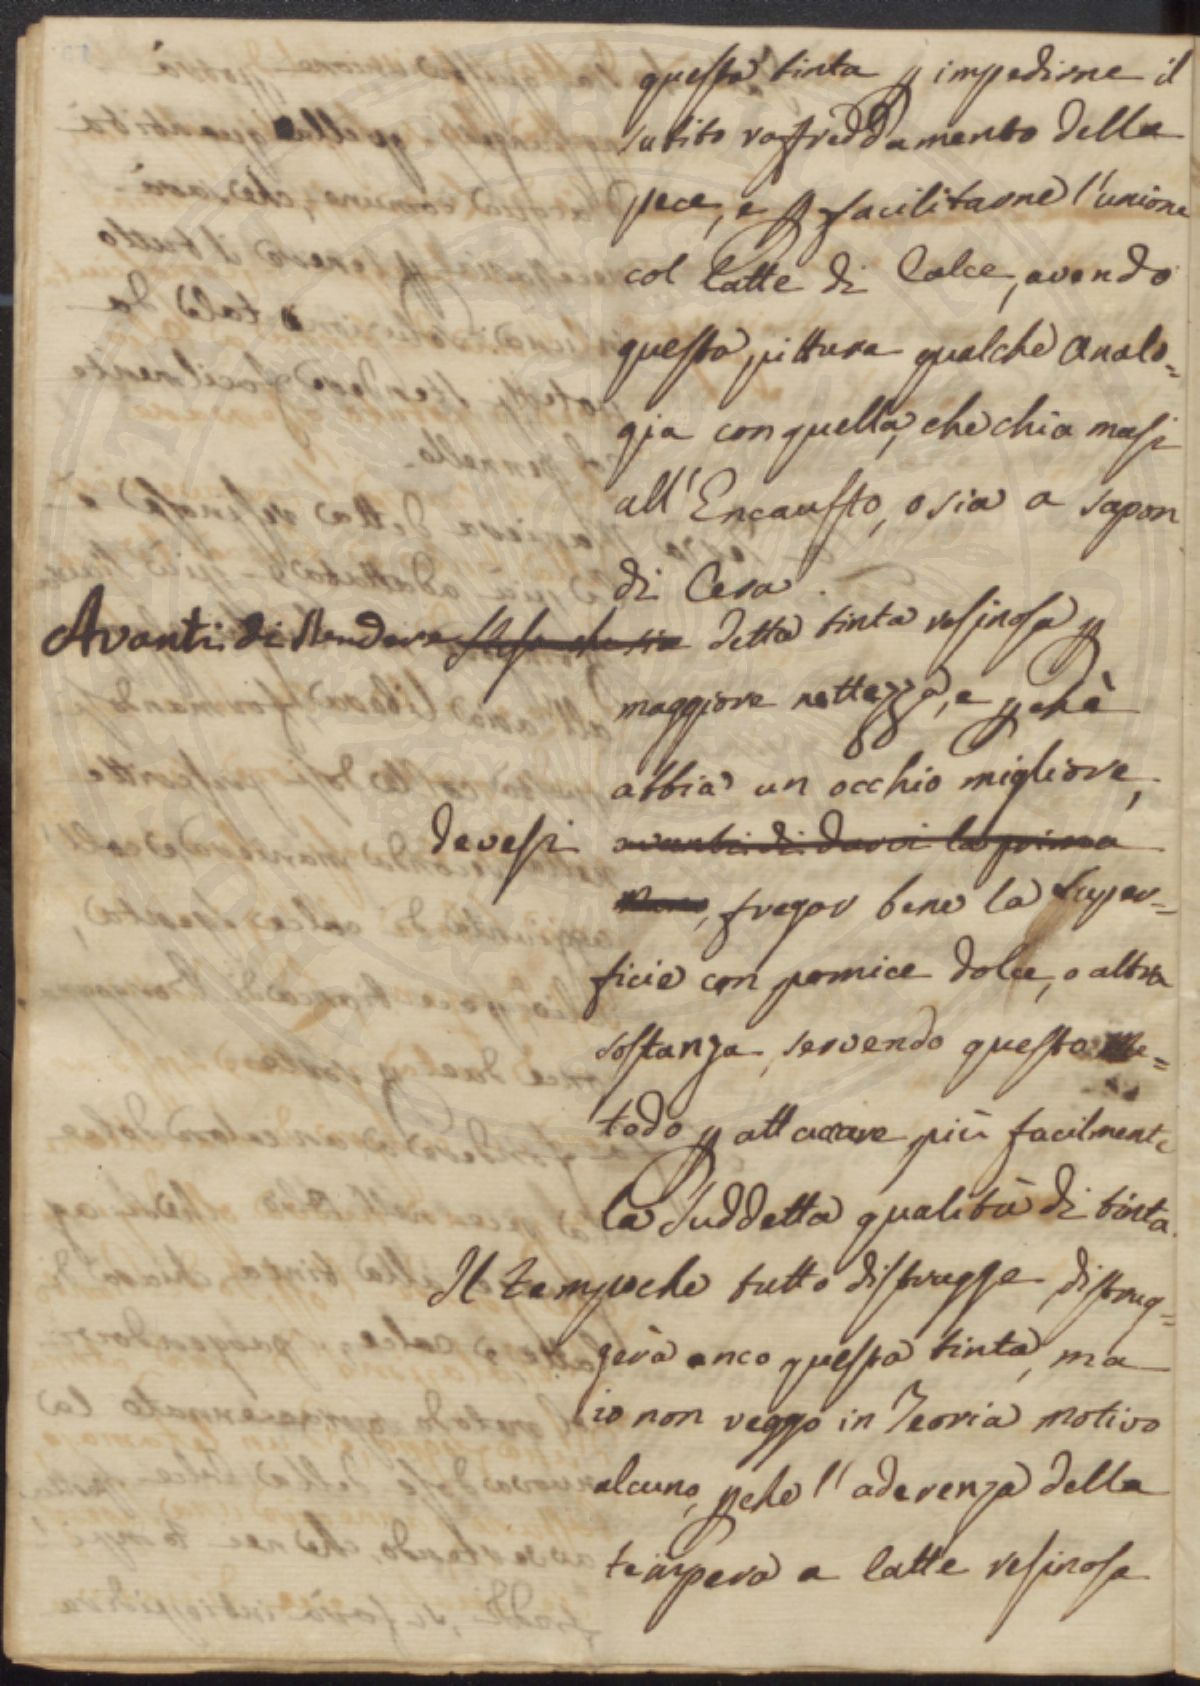 questa tinta p impedirne il
subito raffreddamento della
pece, e p facilitarne l'unione
col latte di Calce, avendo
questa pittura qualche Analo=
gia con quella, che chia masi
all' Encausto, o sia a sapon
di Cera.
Avanti di Stendere stesa che sia detta tinta resinosa p
maggiore nettezza, e pchè
abbia un occhio migliore,
devesi avanti di darci la prima
mano, fregar bene la super=
ficie con pomice dolce, o altra
sostanza, servendo questo Me=
todo p attaccare più facilmente
la suddetta qualità di tinta.
Il tempo che tutto distrugge distrug=
gerà anco questa tinta, ma
io non veggo in Teoria motivo
alcuno, pchè l'aderenza della
tempera a latte resinosa